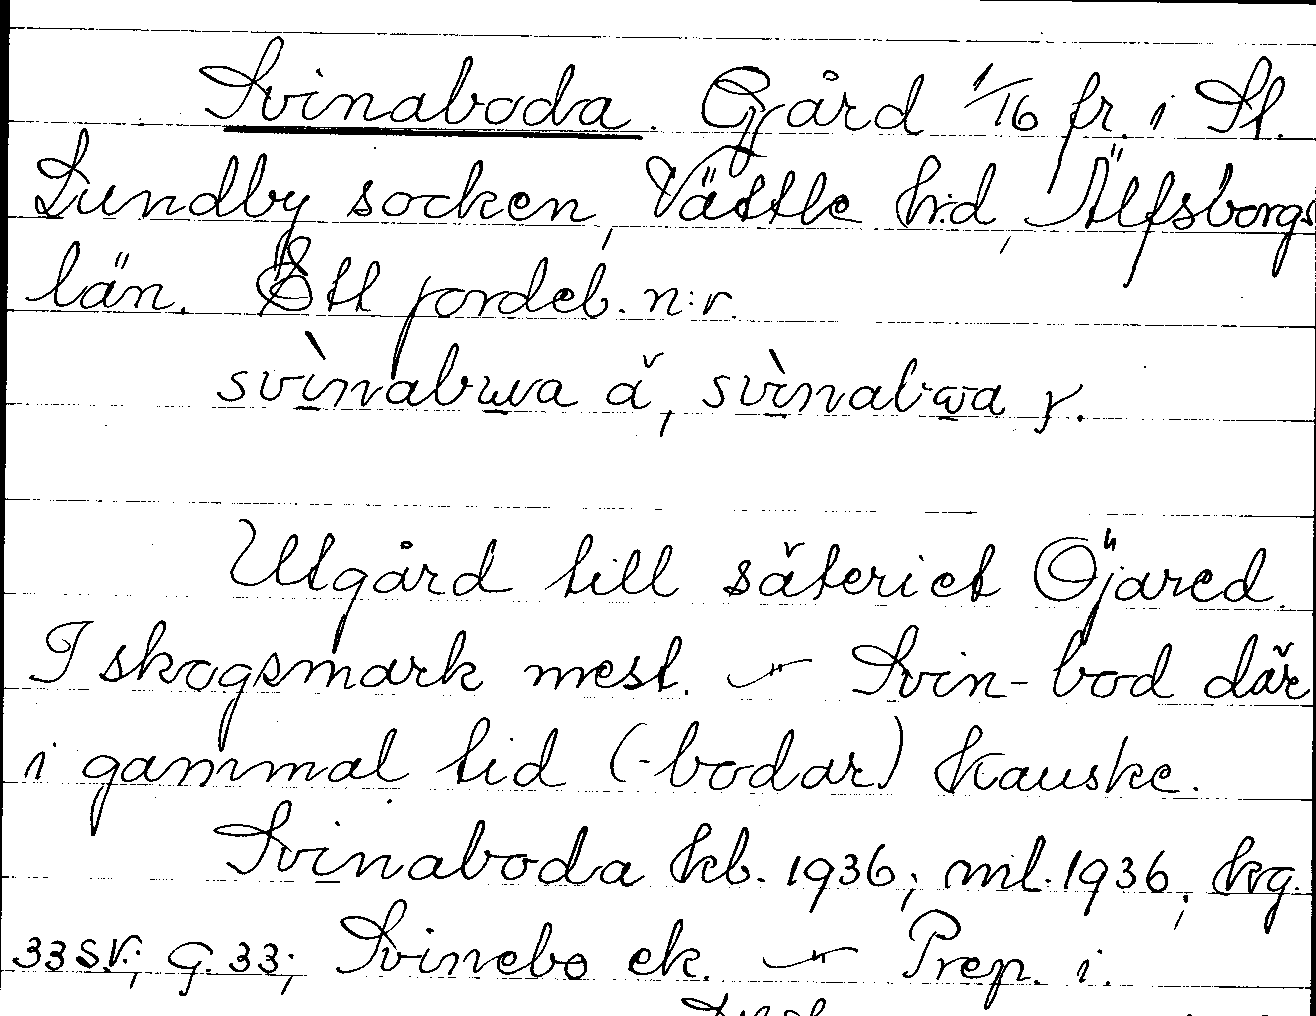 Svinaboda. Gård 1/16 fr. i St.
Lundby socken, Vättle h:d, Älfsborgs
län. Ett jordeb. n:r.
svìnabuva ă, svìnabωa y.
Utgård till säteriet Öjared.
I skogsmark mest. –"– Svin-bod där
i gammal tid (-bodar) kanske.
Svinaboda kb. 1936; ml. 1936; krg.
33 SV.; G. 33; Svinebo ek. –"– Prep. i.